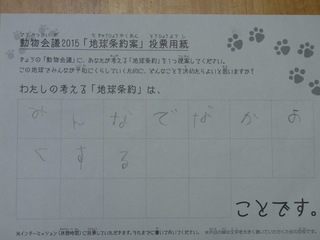 動物会議2015「地球条約案」投票用紙
きょうの「動物会議」に、あなたが考える「地球条約」を1つ提案してください。
この地球でみんなが平和にくらしていくために、どんなことを決めたらよいと思いますか?
わたしの考える「地球条約」は、
みんなでなかよ
くする
ことです。